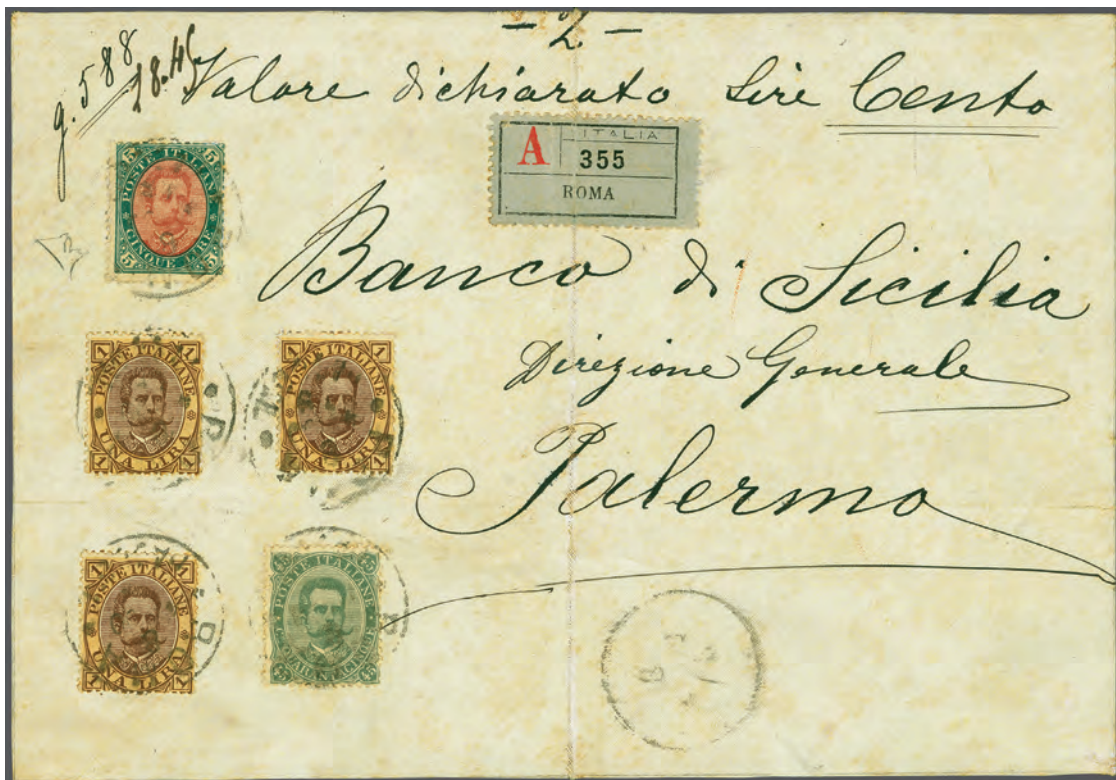 - 2. -
g. 588
18.45
Valore dichiarato Lire Cento
A
ITALIA
355
ROMA
5 5
POSTE ITALIANE
CINQUE LIRE
5 5
Banco di Sicilia
Direzione Generale
Palermo
1 1
POSTE ITALIANE
UNA LIRA
1 1
1 1
POSTE ITALIANE
UNA LIRA
1 1
1 1
POSTE ITALIANE
UNA LIRA
1 1
45 45
POSTE ITALIANE
C. QUARANTACINQUE
45 45